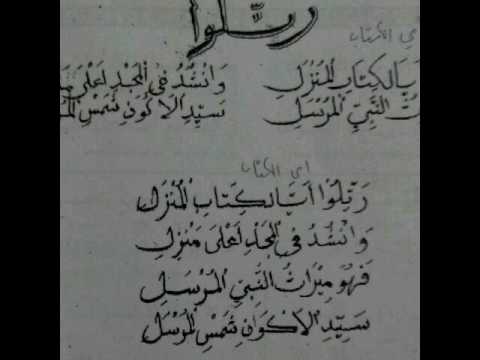 رَتِّلُوا
اي الكتاب
بَالكِتَابِ المُنْزَلِ وَانْشُدُ في المَجْدِ لَعْلَى
النَّبِيِّ المُرْسَلِ سَيِّدِ الاَكْوَنِ شَمْسِ
اي الكتاب
رَتِّلُوا آيَا لكِتَابِ المُنْزَلِ
وَانْشُدُ في المَجْدِ لَعْلَى مَنْزِلِ
فَهْوَ مِيْرَاثُ النَّبِيِّ المُرْسَلِ
سَيِّدِ الاَكْوَانِ شَمْسِ المُرْسَلِ